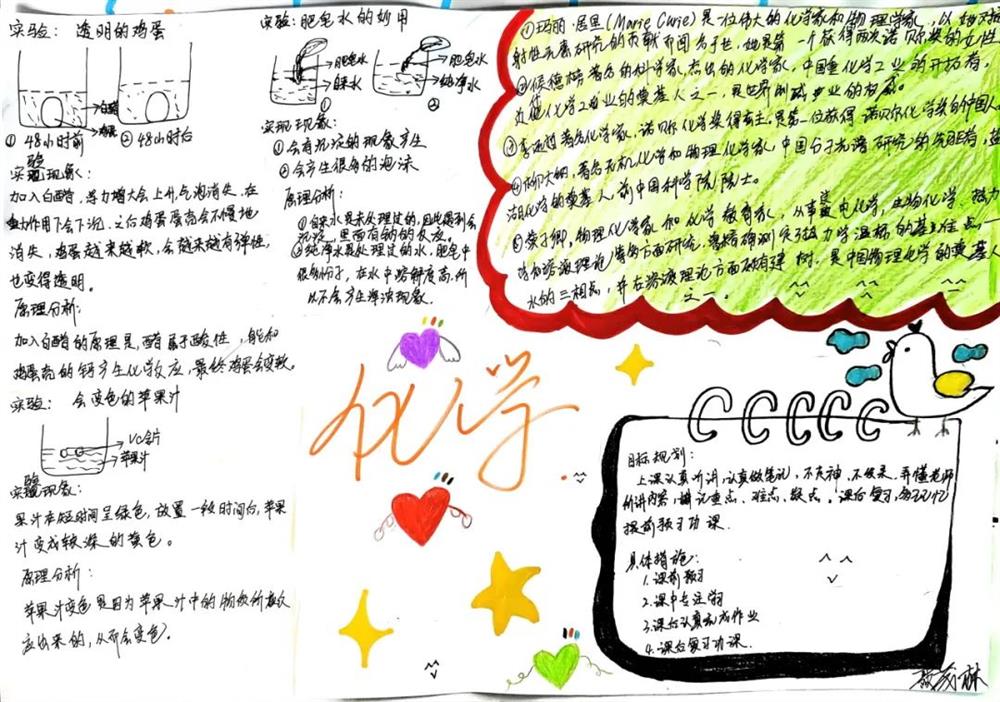 实验: 透明的鸡蛋
白醋
鸡蛋
① 48小时前
② 48小时后
实验现象:
加入白醋, 浮力增大会上升气泡消失, 在
重力作用下会下沉, 之后鸡蛋蛋壳会不慢地
消失, 鸡蛋越来越软, 会越来越有弹性,
也变得透明。
原理分析:
加入白醋的原理是, 醋属于酸性, 能和
鸡蛋壳的钙产生化学反应, 最终鸡蛋会变软,
实验: 会变色的苹果汁
VC含片
苹果汁
实验现象:
果汁在短时间呈绿色, 放置一段时间后, 苹果
汁变成较深的黄色。
原理分析:
苹果汁变色是因为苹果汁中的物质所
应出来的, 从而会变色。
实验: 肥皂水的妙用
肥皂水
自来水
①
肥皂水
纯净水
②
实验现象:
①会有沉淀的现象产生
②会产生很多的泡沫
原理分析:
①自来水是未处理过的, 因此遇到会
沉淀, 里面有钠的反应。
②纯净水是处理过的水, 肥皂中
很多分子, 在水中溶解度高, 所
以不会产生浑浊现象。
①玛丽·居里(Marie Curie)是一位伟大的化学家和物理学家, 以她对放
射性元素研究的贡献而闻名于世, 她是第一个获得两次诺贝尔奖的女性
②候德榜著名的科学家, 杰出的化学家, 中国重化学工业的开拓者,
近代化学工业的奠基人之一, 是世界制碱业的权威。
③李远哲著名化学家, 诺贝尔化学奖得主, 是第一位获得诺贝尔化学奖的中国人
④柳大纲, 著名无机化学和物理化学家, 中国分子光谱研究的先驱者, 盐
湖化学的奠基人, 前中国科学院院士。
⑤黄子卿, 物理化学家和化学教育家, 从事电化学, 生物化学, 热力
学和溶液理论等多方面研究, 精确测定了热力学温标的基准点——
水的三相点, 并在溶液理论方面颇有建树, 是中国物理化学的奠基人
之一。
化学
目标规划:
上课认真听讲, 认真做笔记, 不失神, 不发呆, 弄懂老师
所讲内容, 摘记重点、难点、疑点。课后复习,
提前预习功课.
具体措施:
1. 课前预习
2. 课中专注学习
3. 课后认真完成作业
4. 课后复习功课.